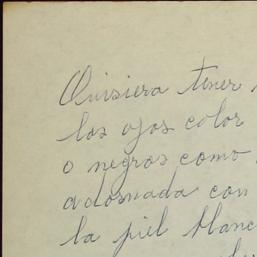 Quisiera tener
los ojos color
o negros como
adornada con
la piel blanc